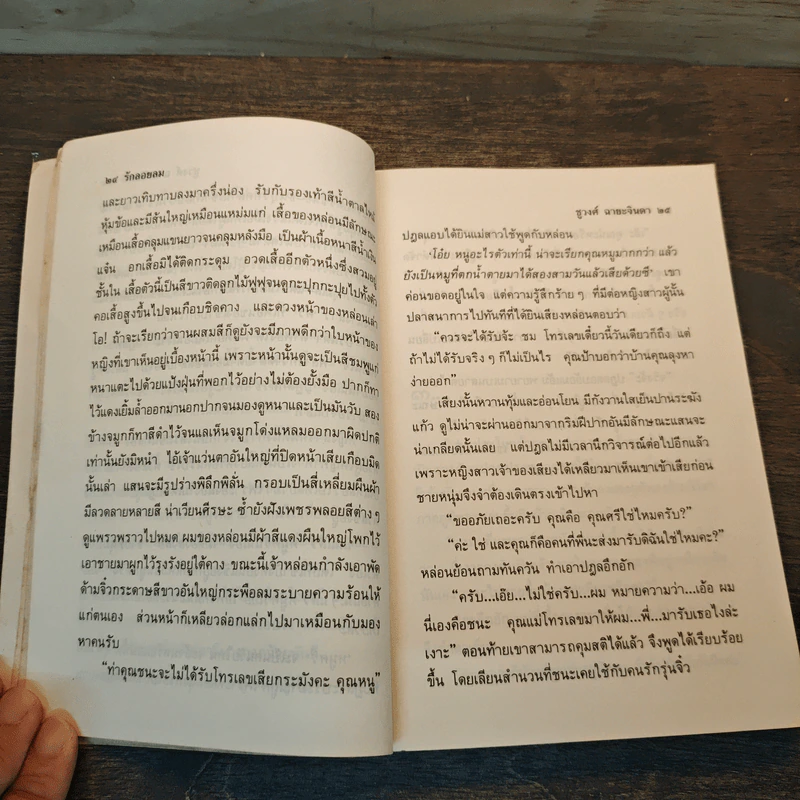 ๒๔ รักลอยลม
และยาวเทิบทาบลงมาครึ่งน่อง รับกับรองเท้าสีน้ำตาลไหม้
หุ้มข้อและมีส้นใหญ่เหมือนแหม่มแก่ เสื้อของหล่อนมีลักษณะ
เหมือนเสื้อคลุมแขนยาวจนคลุมหลังมือ เป็นผ้าเนื้อหนาสีน้ำเงิน
แจ๋น อกเสื้อมิได้ติดกระดุม อวดเสื้ออีกตัวหนึ่งซึ่งสวมอยู่
ชั้นใน เสื้อตัวนี้เป็นสีขาวติดลูกไม้ฟูฟูจนดูกะปุกกะปุยไปทั้งตัว
คอเสื้อสูงขึ้นไปจนเกือบชิดคาง และดวงหน้าของหล่อนเล่า
โอ! ถ้าจะเรียกว่าจานผสมสีก็ดูยังจะมีภาพดีกว่าใบหน้าของ
หญิงที่เขาเห็นอยู่เบื้องหน้านี้ เพราะหน้านั้นดูจะเป็นสีชมพูแก่
หนาแตะไปด้วยแป้งฝุ่นที่พอกไว้อย่างไม่ต้องยั้งมือ ปากก็ทา
ไว้แดงเยิ้มล้ำออกมานอกปากจนมองดูหนาและเป็นมันวับ สอง
ข้างจมูกก็ทาสีดำไว้จนแลเห็นจมูกโด่งแหลมออกมาผิดปกติ
เท่านั้นยังมิหนำ ไอ้เจ้าแว่นตาอันใหญ่ที่ปิดหน้าเสียเกือบมิด
นั้นเล่า แสนจะมีรูปร่างพิลึกพิลั่น กรอบเป็นสี่เหลี่ยมผืนผ้า
มีลวดลายหลายสี น่าเวียนศีรษะ ซ้ำยังฝังเพชรพลอยสีต่าง ๆ
ดูแพรวพราวไปหมด ผมของหล่อนมีผ้าสีแดงผืนใหญ่โพกไว้
เอาชายมาผูกไว้รุงรังอยู่ใต้คาง ขณะนี้เจ้าหล่อนกำลังเอาพัด
ด้ามจิ้วกระดาษสีขาวอันใหญ่กระพือลมระบายความร้อนให้
แก่ตนเอง ส่วนหน้าก็เหลียวล่อกแล่กไปมาเหมือนกับมอง
หาคนรับ
“ท่าคุณชนะจะไม่ได้รับโทรเลขเสียกระมังคะ คุณหนู”
ชูวงศ์ ฉายะจินดา ๒๕
ปฎลแอบได้ยินแม่สาวใช้พูดกับหล่อน
‘โอ๋ย หนูอะไรตัวเท่านี้ น่าจะเรียกคุณหมูมากกว่า แล้ว
ยังเป็นหมูที่ตกน้ำตายมาได้สองสามวันแล้วเสียด้วยซี’ เขา
ค่อนขอดอยู่ในใจ แต่ความรู้สึกร้าย ๆ ที่มีต่อหญิงสาวผู้นั้น
ปลาสนาการไปทันทีที่ได้ยินเสียงหล่อนตอบว่า
“ควรจะได้รับจ้ะ ชม โทรเลขเดี๋ยวนี้วันเดียวก็ถึง แต่
ถ้าไม่ได้รับจริง ๆ ก็ไม่เป็นไร คุณป้าบอกว่าบ้านคุณลุงหา
ง่ายออก”
เสียงนั้นหวานทุ้มและอ่อนโยน มีกังวานใสเย็นปานระฆัง
แก้ว ดูไม่น่าจะผ่านออกมาจากริมฝีปากอันมีลักษณะแสนจะ
น่าเกลียดนั้นเลย แต่ปฎลไม่มีเวลานึกวิจารณ์ต่อไปอีกแล้ว
เพราะหญิงสาวเจ้าของเสียงได้เหลียวมาเห็นเขาเข้าเสียก่อน
ชายหนุ่มจึงจำต้องเดินตรงเข้าไปหา
“ขออภัยเถอะครับ คุณคือ คุณศรีใช่ไหมครับ?”
“ค่ะ ใช่ และคุณก็คือคนที่พี่นะส่งมารับดิฉันใช่ไหมคะ?”
หล่อนย้อนถามทันควัน ทำเอาปฎลอึกอัก
“ครับ...เอ๊ย...ไม่ใช่ครับ...ผม หมายความว่า...เอ้อ ผม
นี่เองคือชนะ คุณแม่โทรเลขมาให้ผม...พี่...มารับเธอไงล่ะ
เงาะ” ตอนท้ายเขาสามารถคุมสติได้แล้ว จึงพูดได้เรียบร้อย
ขึ้น โดยเลียนสำนวนที่ชนะเคยใช้กับคนรักรุ่นจิ๋ว